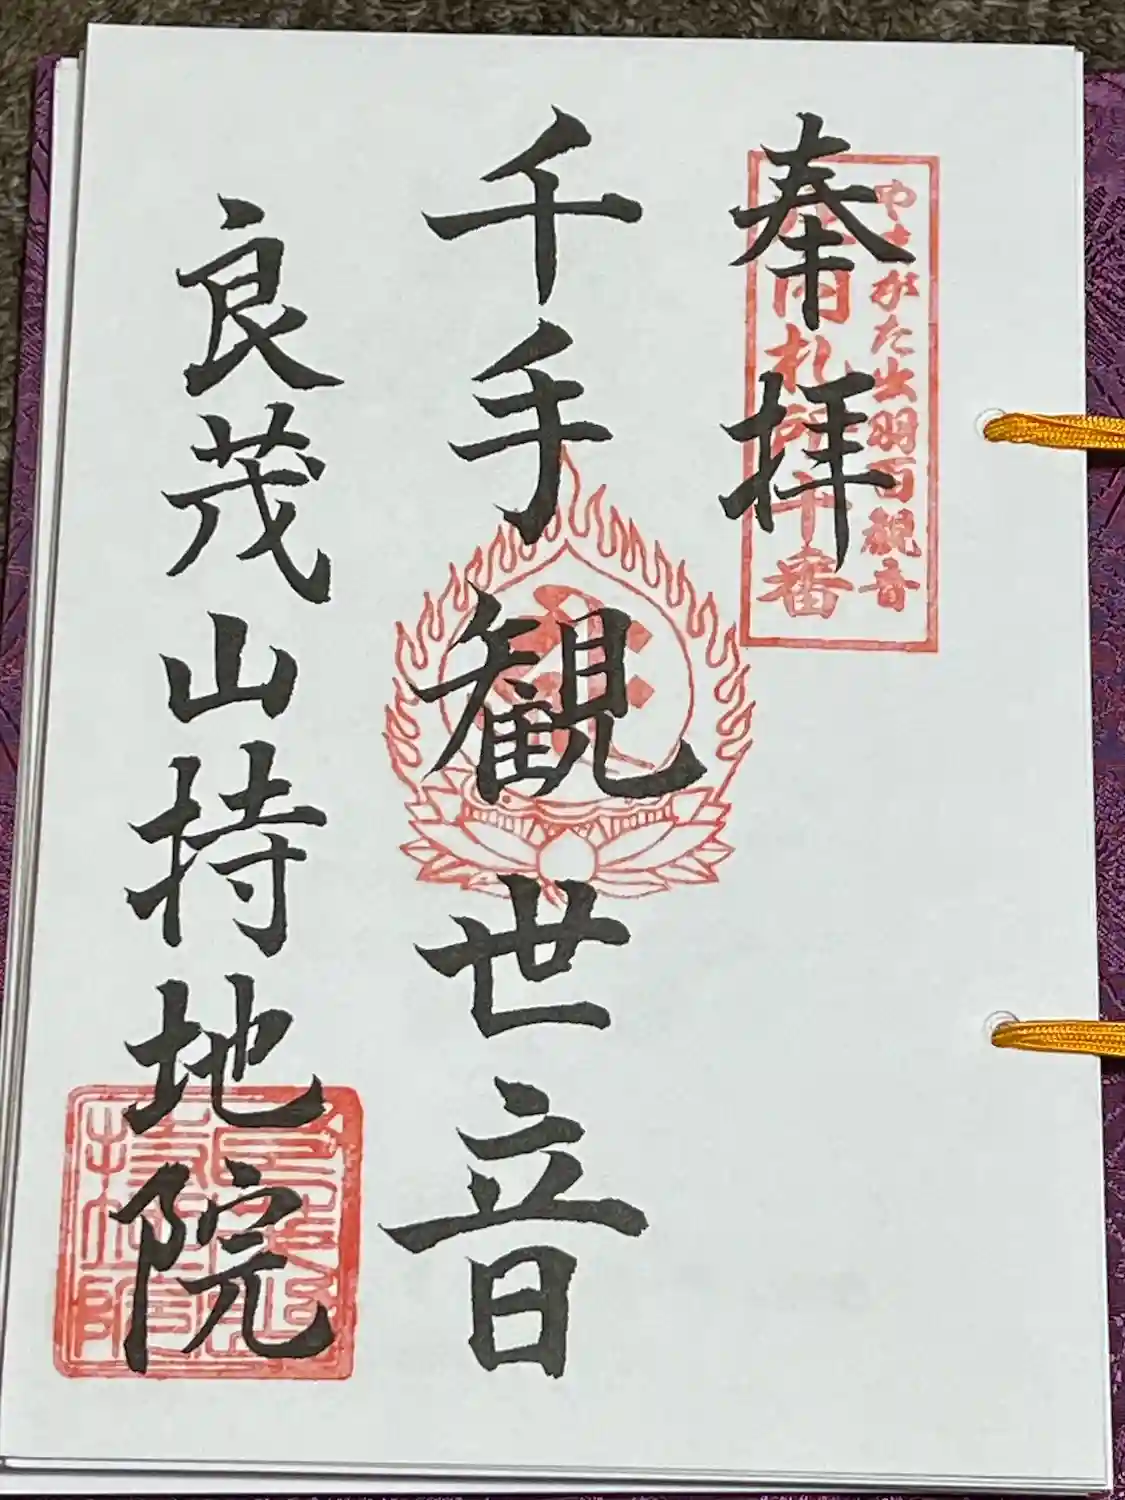 やまがた出羽百観音
庄内札所十番
奉拝
千手観世音
良茂山持地院